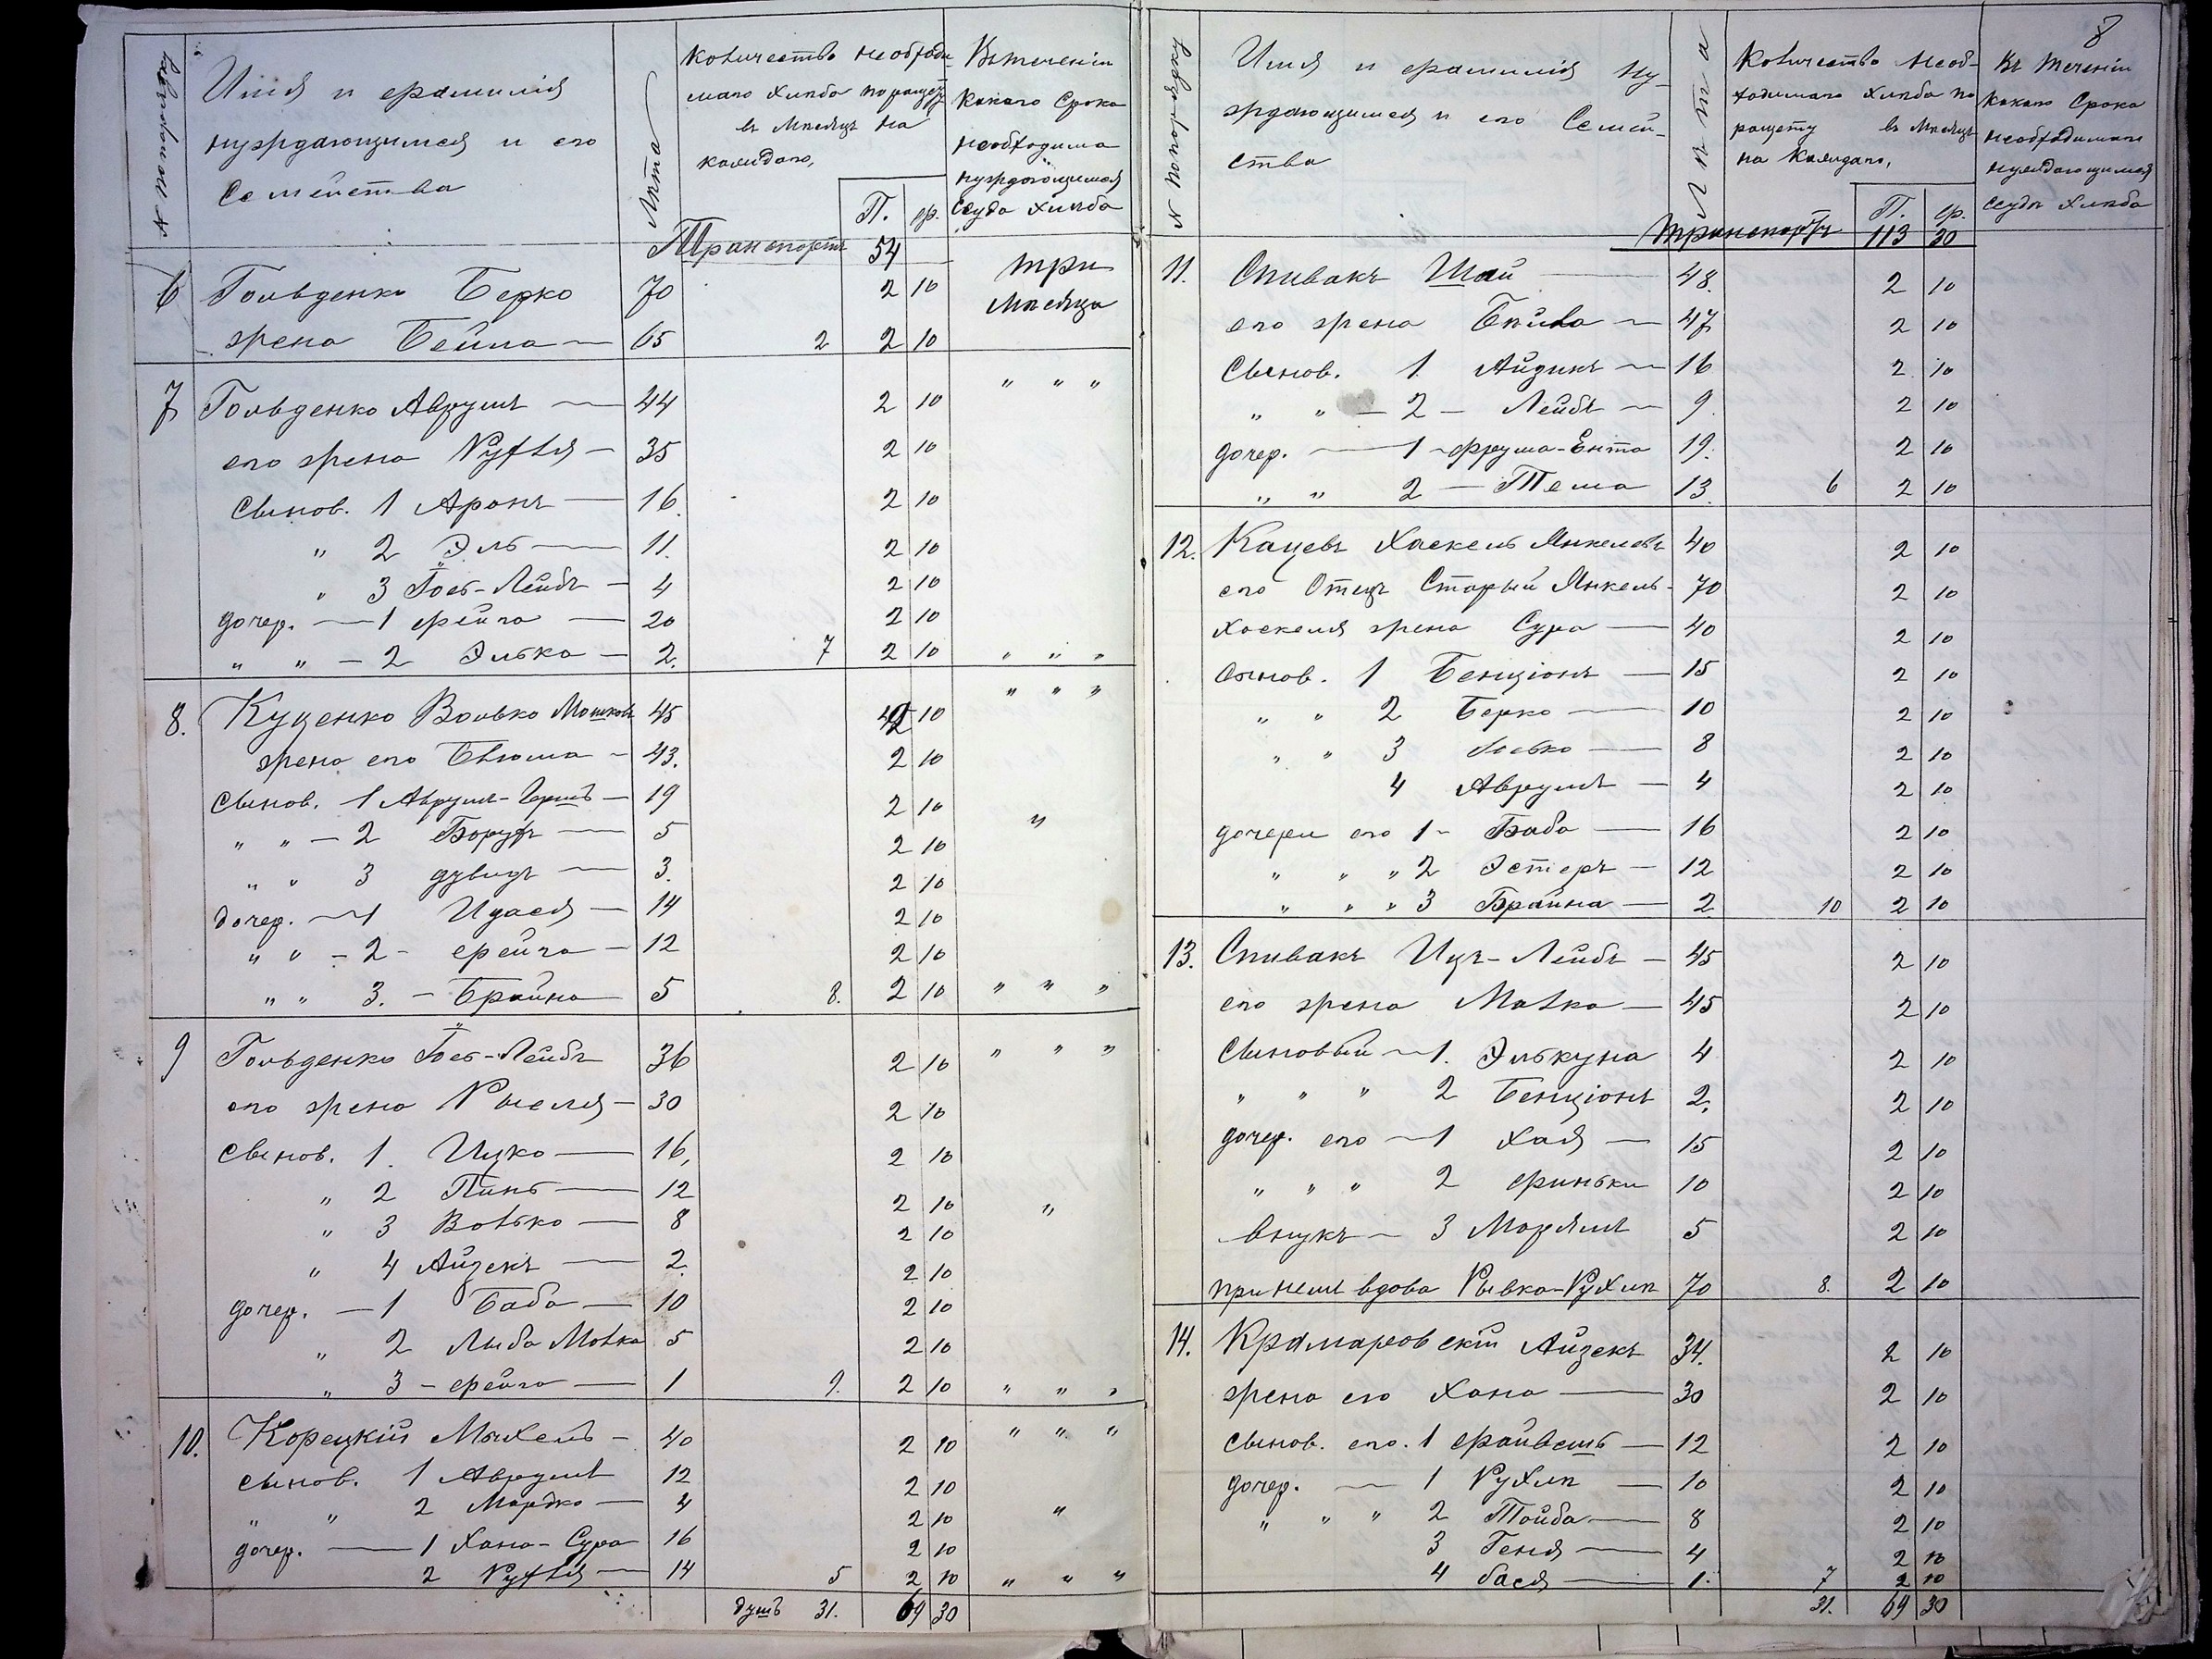 № по порядку
Имя и фамилія
нуждающимся и его
Семейства
Лѣта
Количество необходи
маго хлѣба по ращету
въ Мѣсяцъ на
каждаго,
П. ф.
Въ теченіи
какаго Срока
необходима
нуждающимся
Ссуда хлѣба
Транспортъ 54
6 Гольденко Берко 70 2 10 три
Мѣсяца
жена Бейла 65 2 2 10
7 Гольденко Аврумъ 44 2 10 " " "
его жена Рухля 35 2 10
Сынов. 1 Аронъ 16. 2 10
" 2 Эль 11. 2 10
" 3 Іось-Лейбъ 4 2 10
дочер. 1 фейга 20 2 10
" " 2 Элька 2. 7 2 10 " " "
8. Куценко Волько Мошковъ 45 2 10 " " "
жена его Блюма 43. 2 10
Сынов. 1 Аврумъ-Гершъ 19 2 10 "
" " 2 Борухъ 5 2 10
" " 3 дувидъ 3. 2 10
дочер. 1 Идася 14 2 10
" " 2 фейга 12 2 10
" " 3. Брайна 5 8. 2 10 " " "
9 Гольденко Іось-Лейбъ 36 2 10 " " "
его жена Рыселя 30 2 10
Сынов. 1. Ицко 16, 2 10
" 2 Пинь 12 2 10 "
" 3 Волько 8 2 10
" 4 Айзекъ 2. 2 10
дочер. 1 Баба 10 2 10
" 2 Лыба Малка 5 2 10
" 3 фейга 1 9. 2 10 " " "
10. Корецкій Мыхель 40 2 10 " " "
сынов. 1 Аврумъ 12 2 10
" " 2 Мордко 4 2 10 "
дочер. 1 Хана-Сура 16 2 10
2 Рухля 14 5 2 10 " " "
душъ 31. 69 30
8
№ По порядку
Имя и фамилія ну-
ждающимся и его Семей-
ства
Лѣта
Количество необ-
ходимаго хлѣба по
ращету въ Мѣсяцъ
на Каждаго,
П. ф.
Въ теченіи
какаго Срока
необходимаго
нуждающимся
ссуды хлѣба
Транспортъ 113 30
11. Спивакъ Шай 48. 2 10
его жена Бейла 47 2 10
Сынов. 1 Айзикъ 16 2 10
" " 2 Лейбъ 9. 2 10
дочер. 1 фрума-Ента 19. 2 10
" " 2 Тема 13. 6 2 10
12. Кацевъ Хаскель Янкелевъ 40 2 10
его Отецъ Старый Янкель 70 2 10
Хаскеля жена Сура 40 2 10
Сынов. 1 Бенціонъ 15 2 10
" " 2 Берко 10 2 10
" " 3 8 2 10
4 Аврумъ 4 2 10
дочери его 1 Баба 16 2 10
" " " 2 Эстеръ 12 2 10
" " " 3 Брайна 2 10 2 10
13. Спивакъ Иць-Лейбъ 45 2 10
его жена Малка 45 2 10
Сыновый 1. Элькуна 4 2 10
" " " 2 Бенціонъ 2, 2 10
дочер. его 1 Хая 15 2 10
" " " 2 финьки 10 2 10
внукъ 3 Моріямъ 5 2 10
при немъ вдова Рывка-Рухля 70 8. 2 10
14. Крамаровскій Айзекъ 34. 2 10
жена его Хана 30 2 10
Сынов. его. 1 файвешъ 12 2 10
дочер. 1 Рухля 10 2 10
" " " 2 Тойба 8 2 10
3 Геня 4 2 10
4 бася 1. 7 2 10
31. 69 30